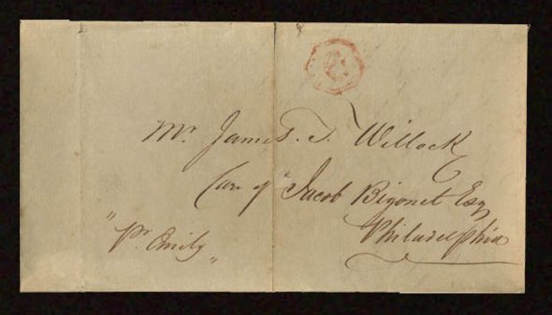 Mr. James. T. Willock
Care of Jacob Bigonet Esq
Philadelphia
"Pr. Emily"